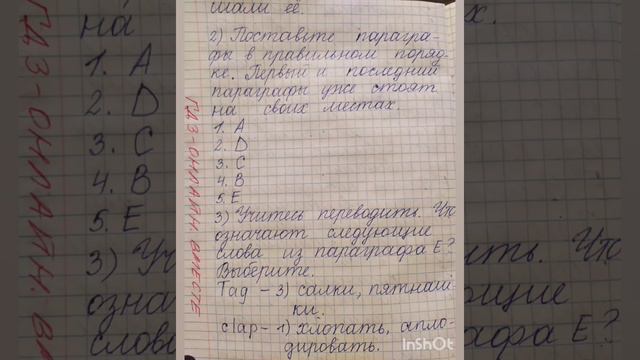 шали её.
2) Поставьте парагра-
фы в правильном поряд-
ке. Первый и последний
параграфы уже стоят
на своих местах.
1. A
2. D
3. C
4. B
5. E
3) Учитесь переводить. Что
означают следующие
слова из параграфа E?
Выберите.
Tag - 3) салки, пятнаш-
ки.
clap - 1) хлопать, апло-
дировать.
ГДЗ-ОНЛАЙН ВМЕСТЕ
InShOt